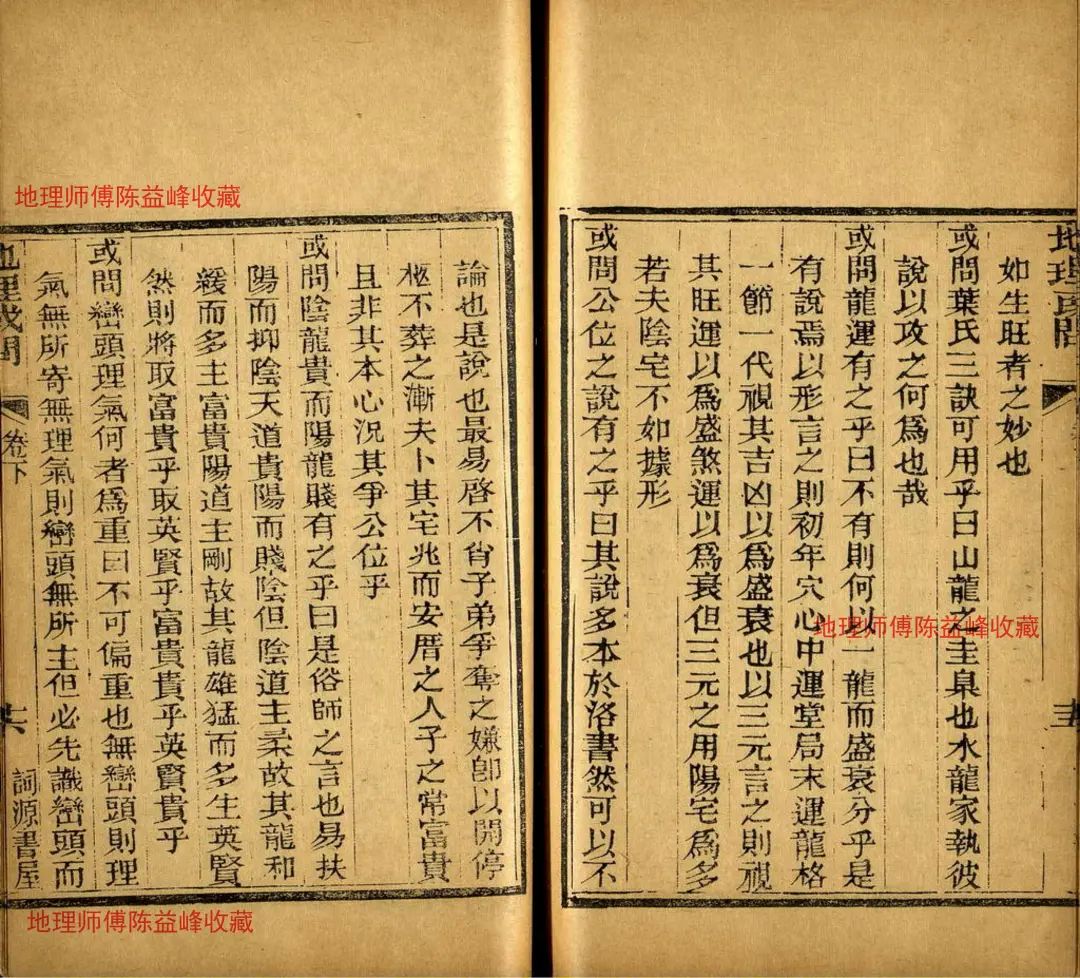 地理或問
如生旺者之妙也
或問葉氏三訣可用乎曰山龍之圭臬也水龍家執彼
說以攻之何為也哉
或問龍運有之乎曰不有則何以一龍而盛衰分乎是
有說焉以形言之則初年穴心中運堂局末運龍格
一節一代視其吉凶以為盛衰也以三元言之則視
其旺運以為盛煞運以為衰但三元之用陽宅為多
若夫陰宅不如據形
或問公位之說有之乎曰其說多本於洛書然可以不
論也是說也最易啓不肖子弟爭奪之嫌卽以開停
柩不葬之漸夫卜其宅兆而安厝之人子之常富貴
且非其本心況其爭公位乎
或問陰龍貴而陽龍賤有之乎曰是俗師之言也易扶
陽而抑陰天道貴陽而賤陰但陰道主柔故其龍和
緩而多主富貴陽道主剛故其龍雄猛而多生英賢
然則將取富貴乎取英賢乎富貴貴乎英賢貴乎
或問巒頭理氣何者為重曰不可偏重也無巒頭則理
氣無所寄無理氣則巒頭無所主但必先識巒頭而
地理或問 卷下 十六 詞源書屋
地理师傅陈益峰收藏
地理师傅陈益峰收藏
地理师傅陈益峰收藏